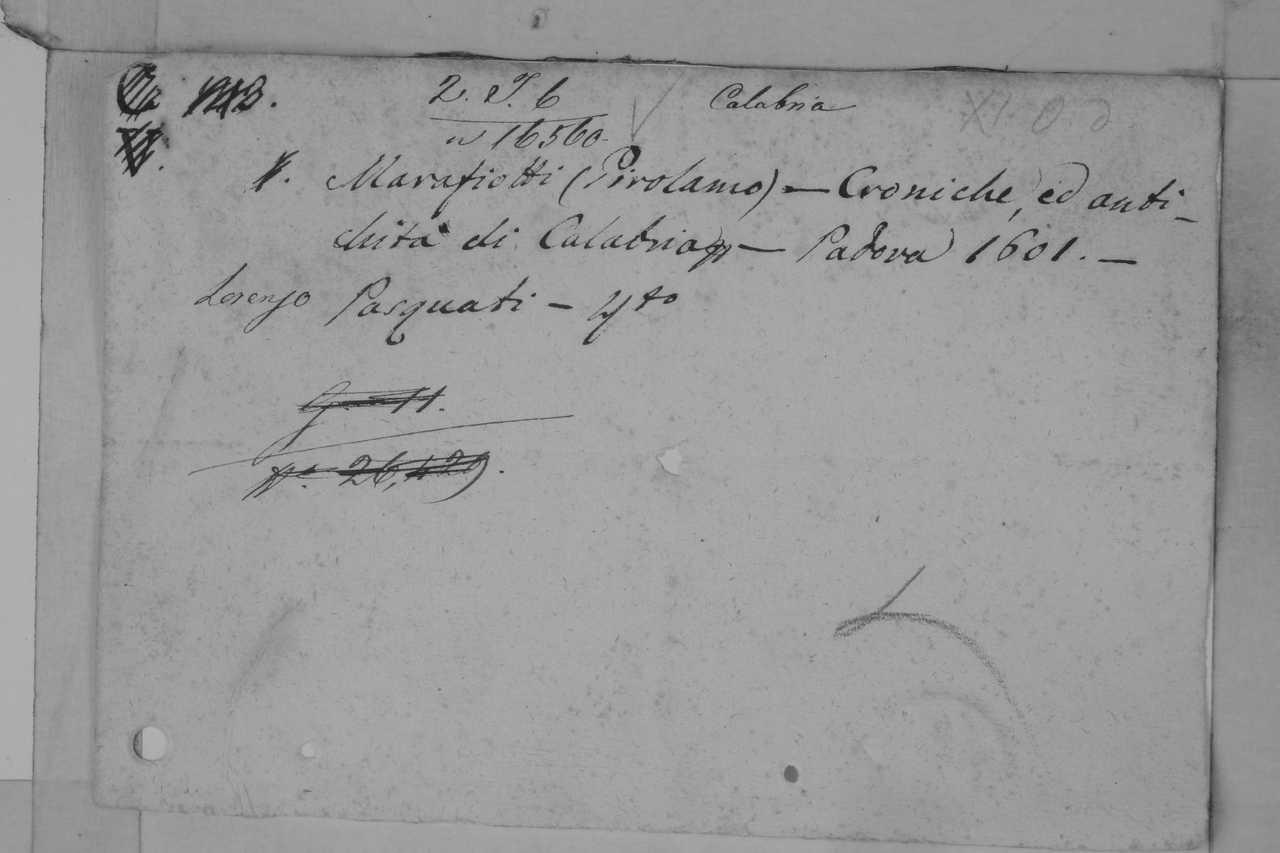 2. T. 6 Calabria
n 16560.
Marafiotti (Pirolamo) — Croniche, ed anti-
chità di Calabria — Padova 1601. —
Lorenzo Pasquati — 4to
G. 11.
No. 26,429.